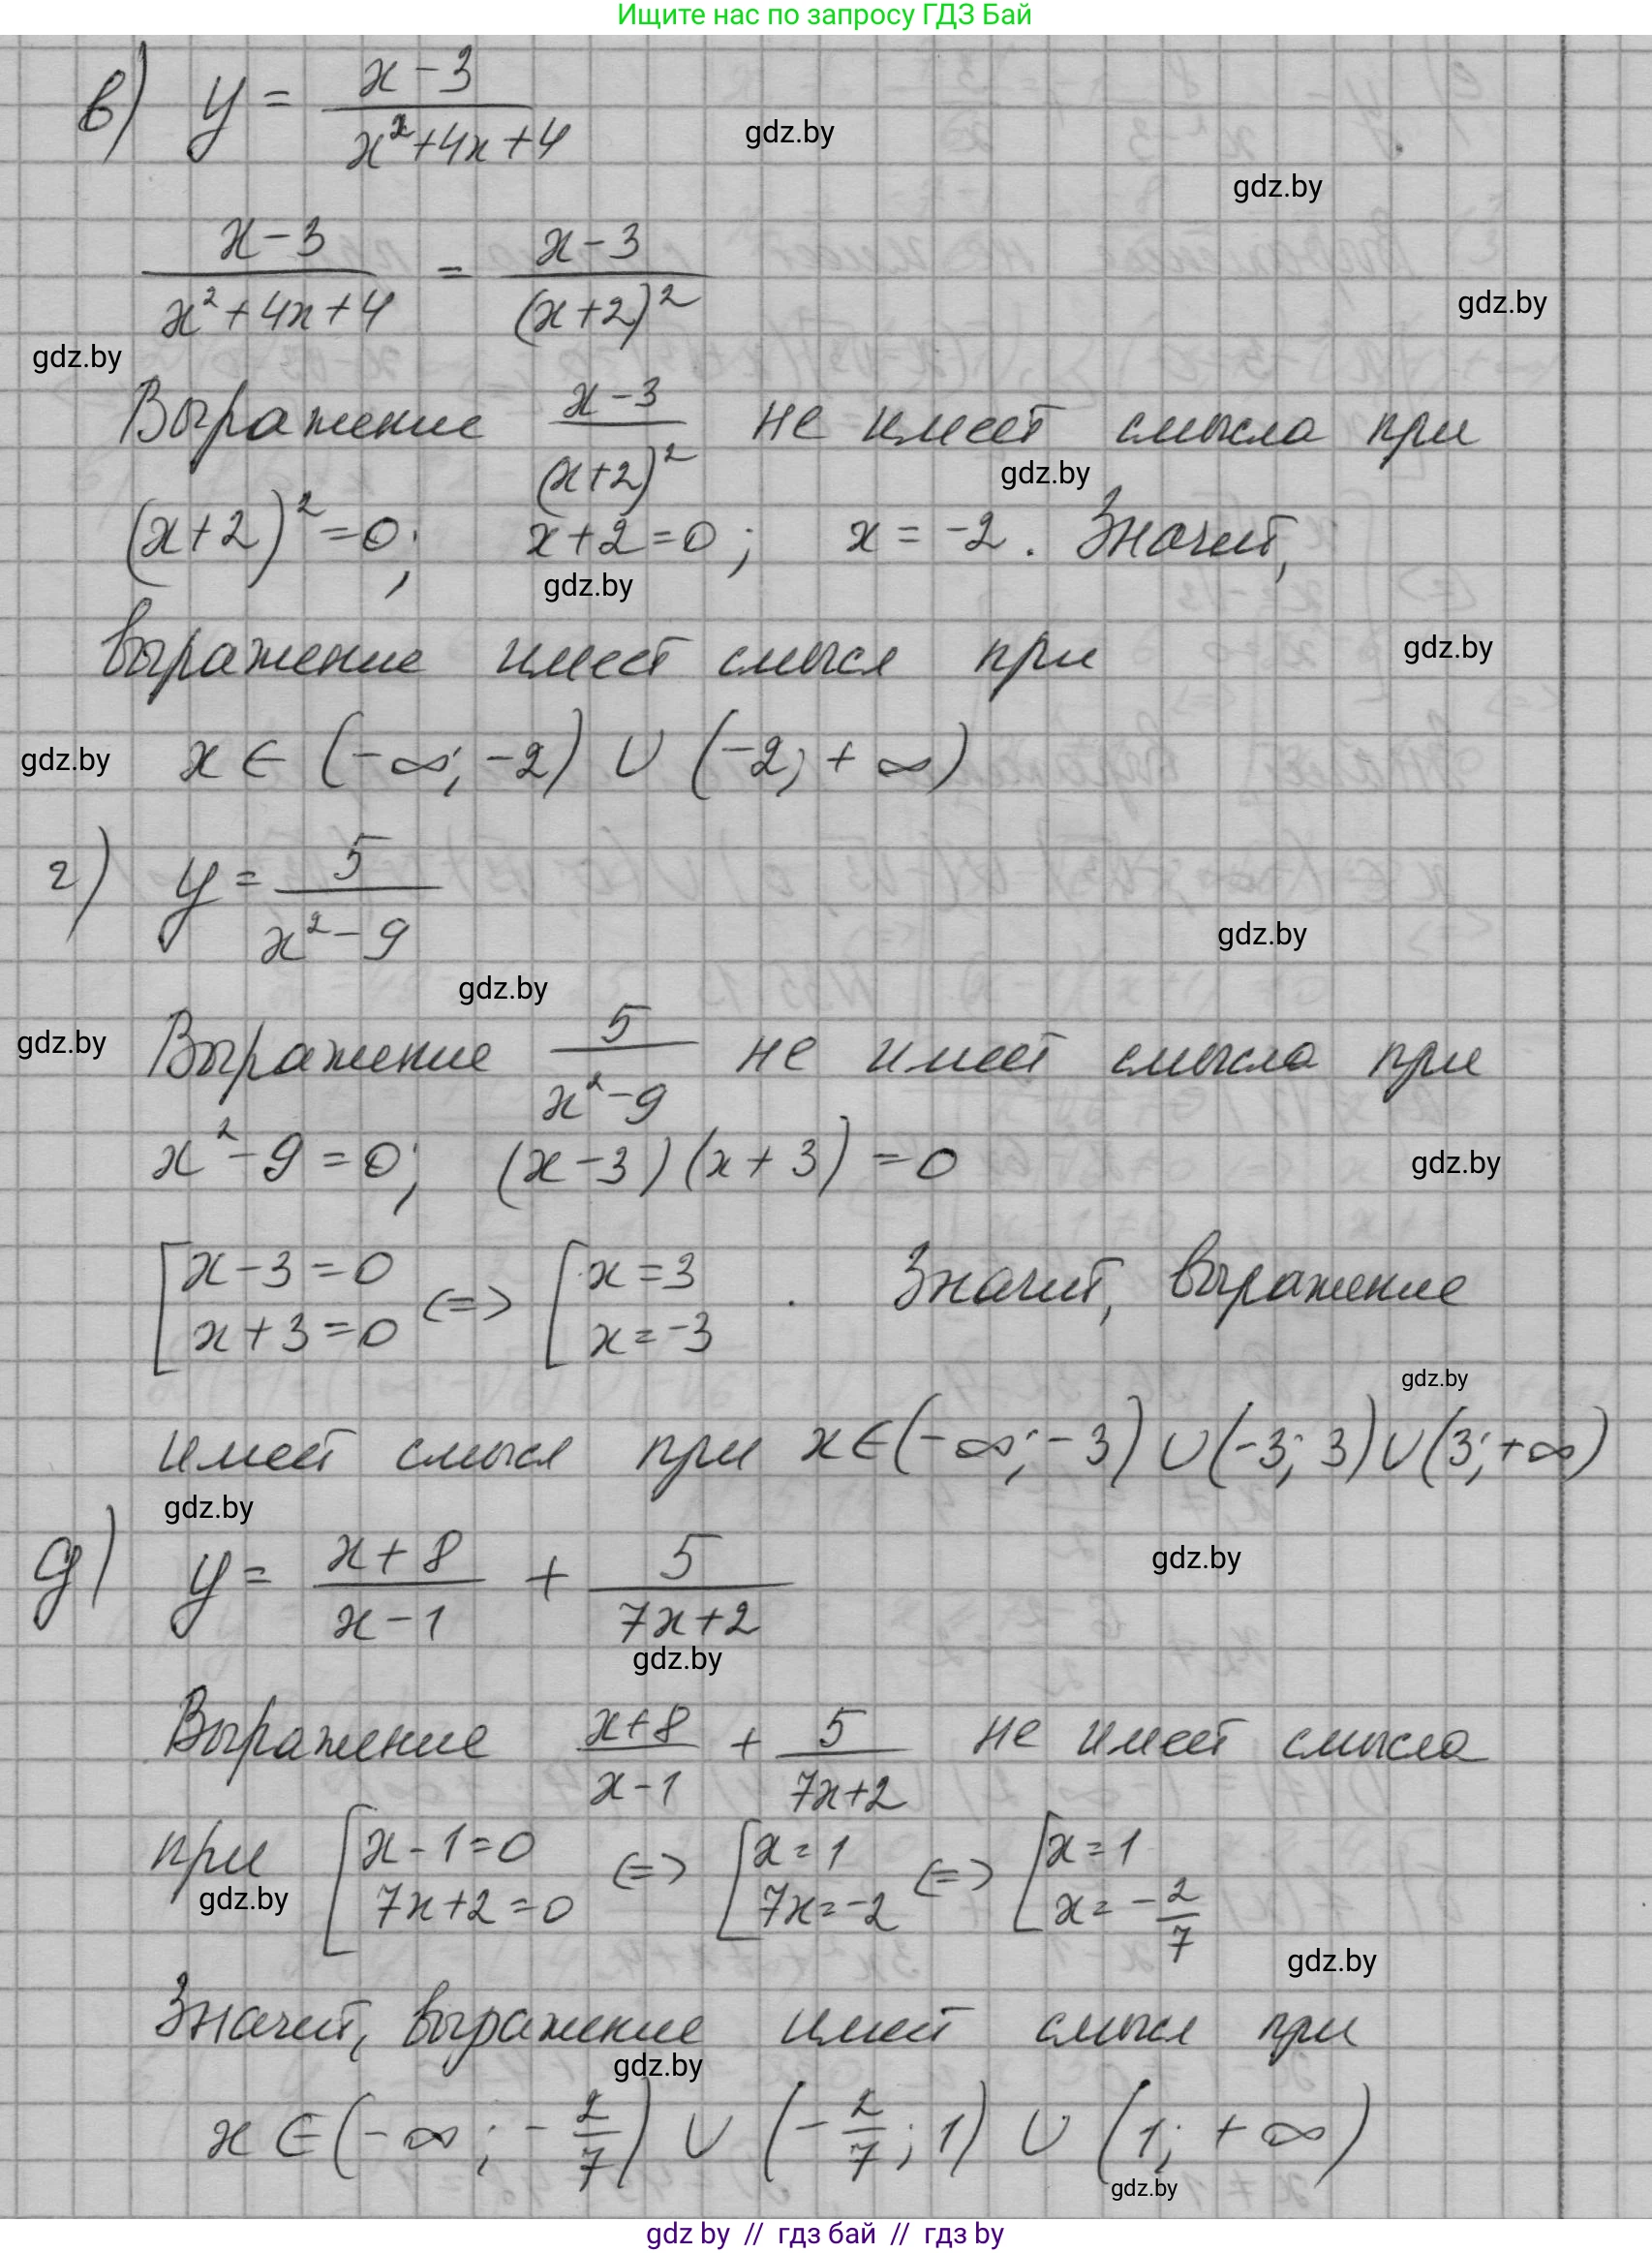 Ищите нас по запросу ГДЗ Бай
в) y = (x-3)/(x²+4x+4)
gdz.by
gdz.by
(x-3)/(x²+4x+4) = (x-3)/(x+2)²
gdz.by
gdz.by
Выражение (x-3)/(x+2)² не имеет смысла при
gdz.by
(x+2)²=0; x+2=0; x = -2. Значит,
gdz.by
выражение имеет смысл при
gdz.by
gdz.by
x ∈ (-∞; -2) ∪ (-2; +∞)
г) y = 5/(x²-9)
gdz.by
gdz.by
gdz.by
Выражение 5/(x²-9) не имеет смысла при
x²-9=0; (x-3)(x+3)=0
gdz.by
[x-3=0 <=> [x=3 . Значит, выражение
x+3=0 x=-3
gdz.by
имеет смысл при x∈(-∞;-3)∪(-3;3)∪(3;+∞)
gdz.by
д) y = (x+8)/(x-1) + 5/(7x+2)
gdz.by
gdz.by
Выражение (x+8)/(x-1) + 5/(7x+2) не имеет смысла
при [x-1=0 <=> [x=1 <=> [x=1
7x+2=0 7x=-2 x=-2/7
gdz.by
gdz.by
Значит, выражение имеет смысл при
gdz.by
x ∈ (-∞; -2/7) ∪ (-2/7; 1) ∪ (1; +∞)
gdz.by
gdz by // гдз бай // гдз by